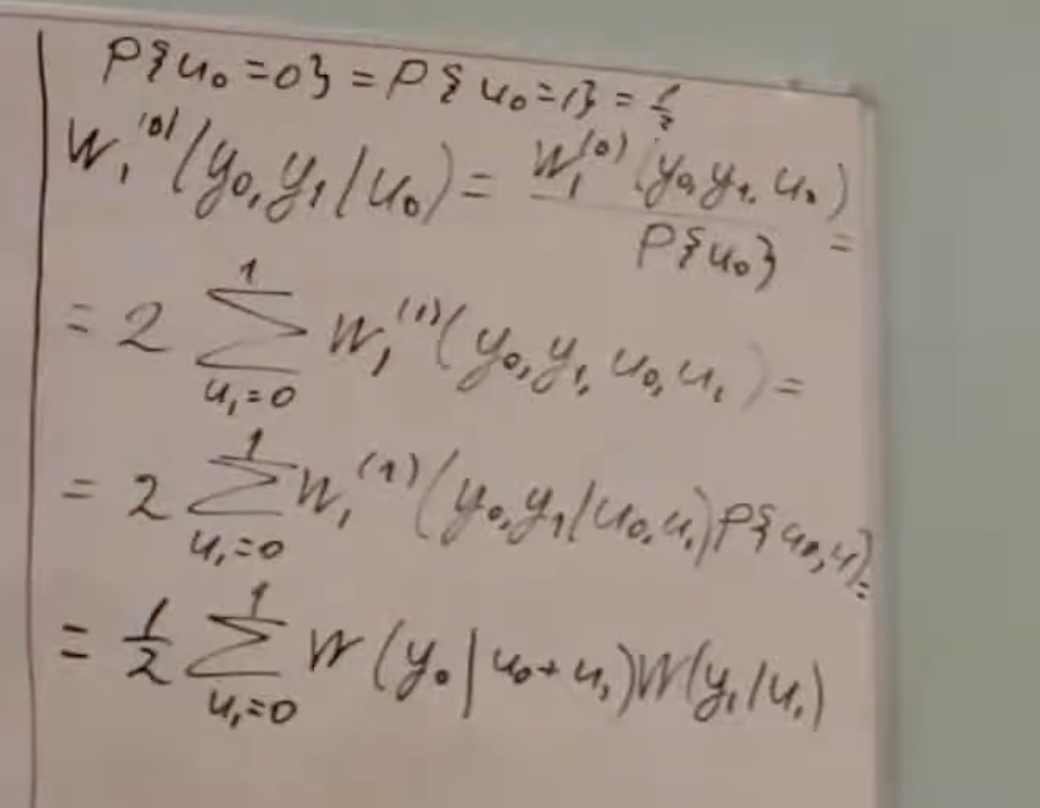 P{u₀=0} = P{u₀=1} = 1/2
W₁⁽⁰⁾(y₀,y₁|u₀) = W₁⁽⁰⁾(y₀,y₁,u₀) / P{u₀} =
= 2 ∑_{u₁=0}^{1} W₁⁽¹⁾(y₀,y₁,u₀,u₁) =
= 2 ∑_{u₁=0}^{1} W₁⁽¹⁾(y₀,y₁|u₀,u₁)P{u₀,u₁} =
= 1/2 ∑_{u₁=0}^{1} W(y₀|u₀+u₁)W(y₁|u₁)